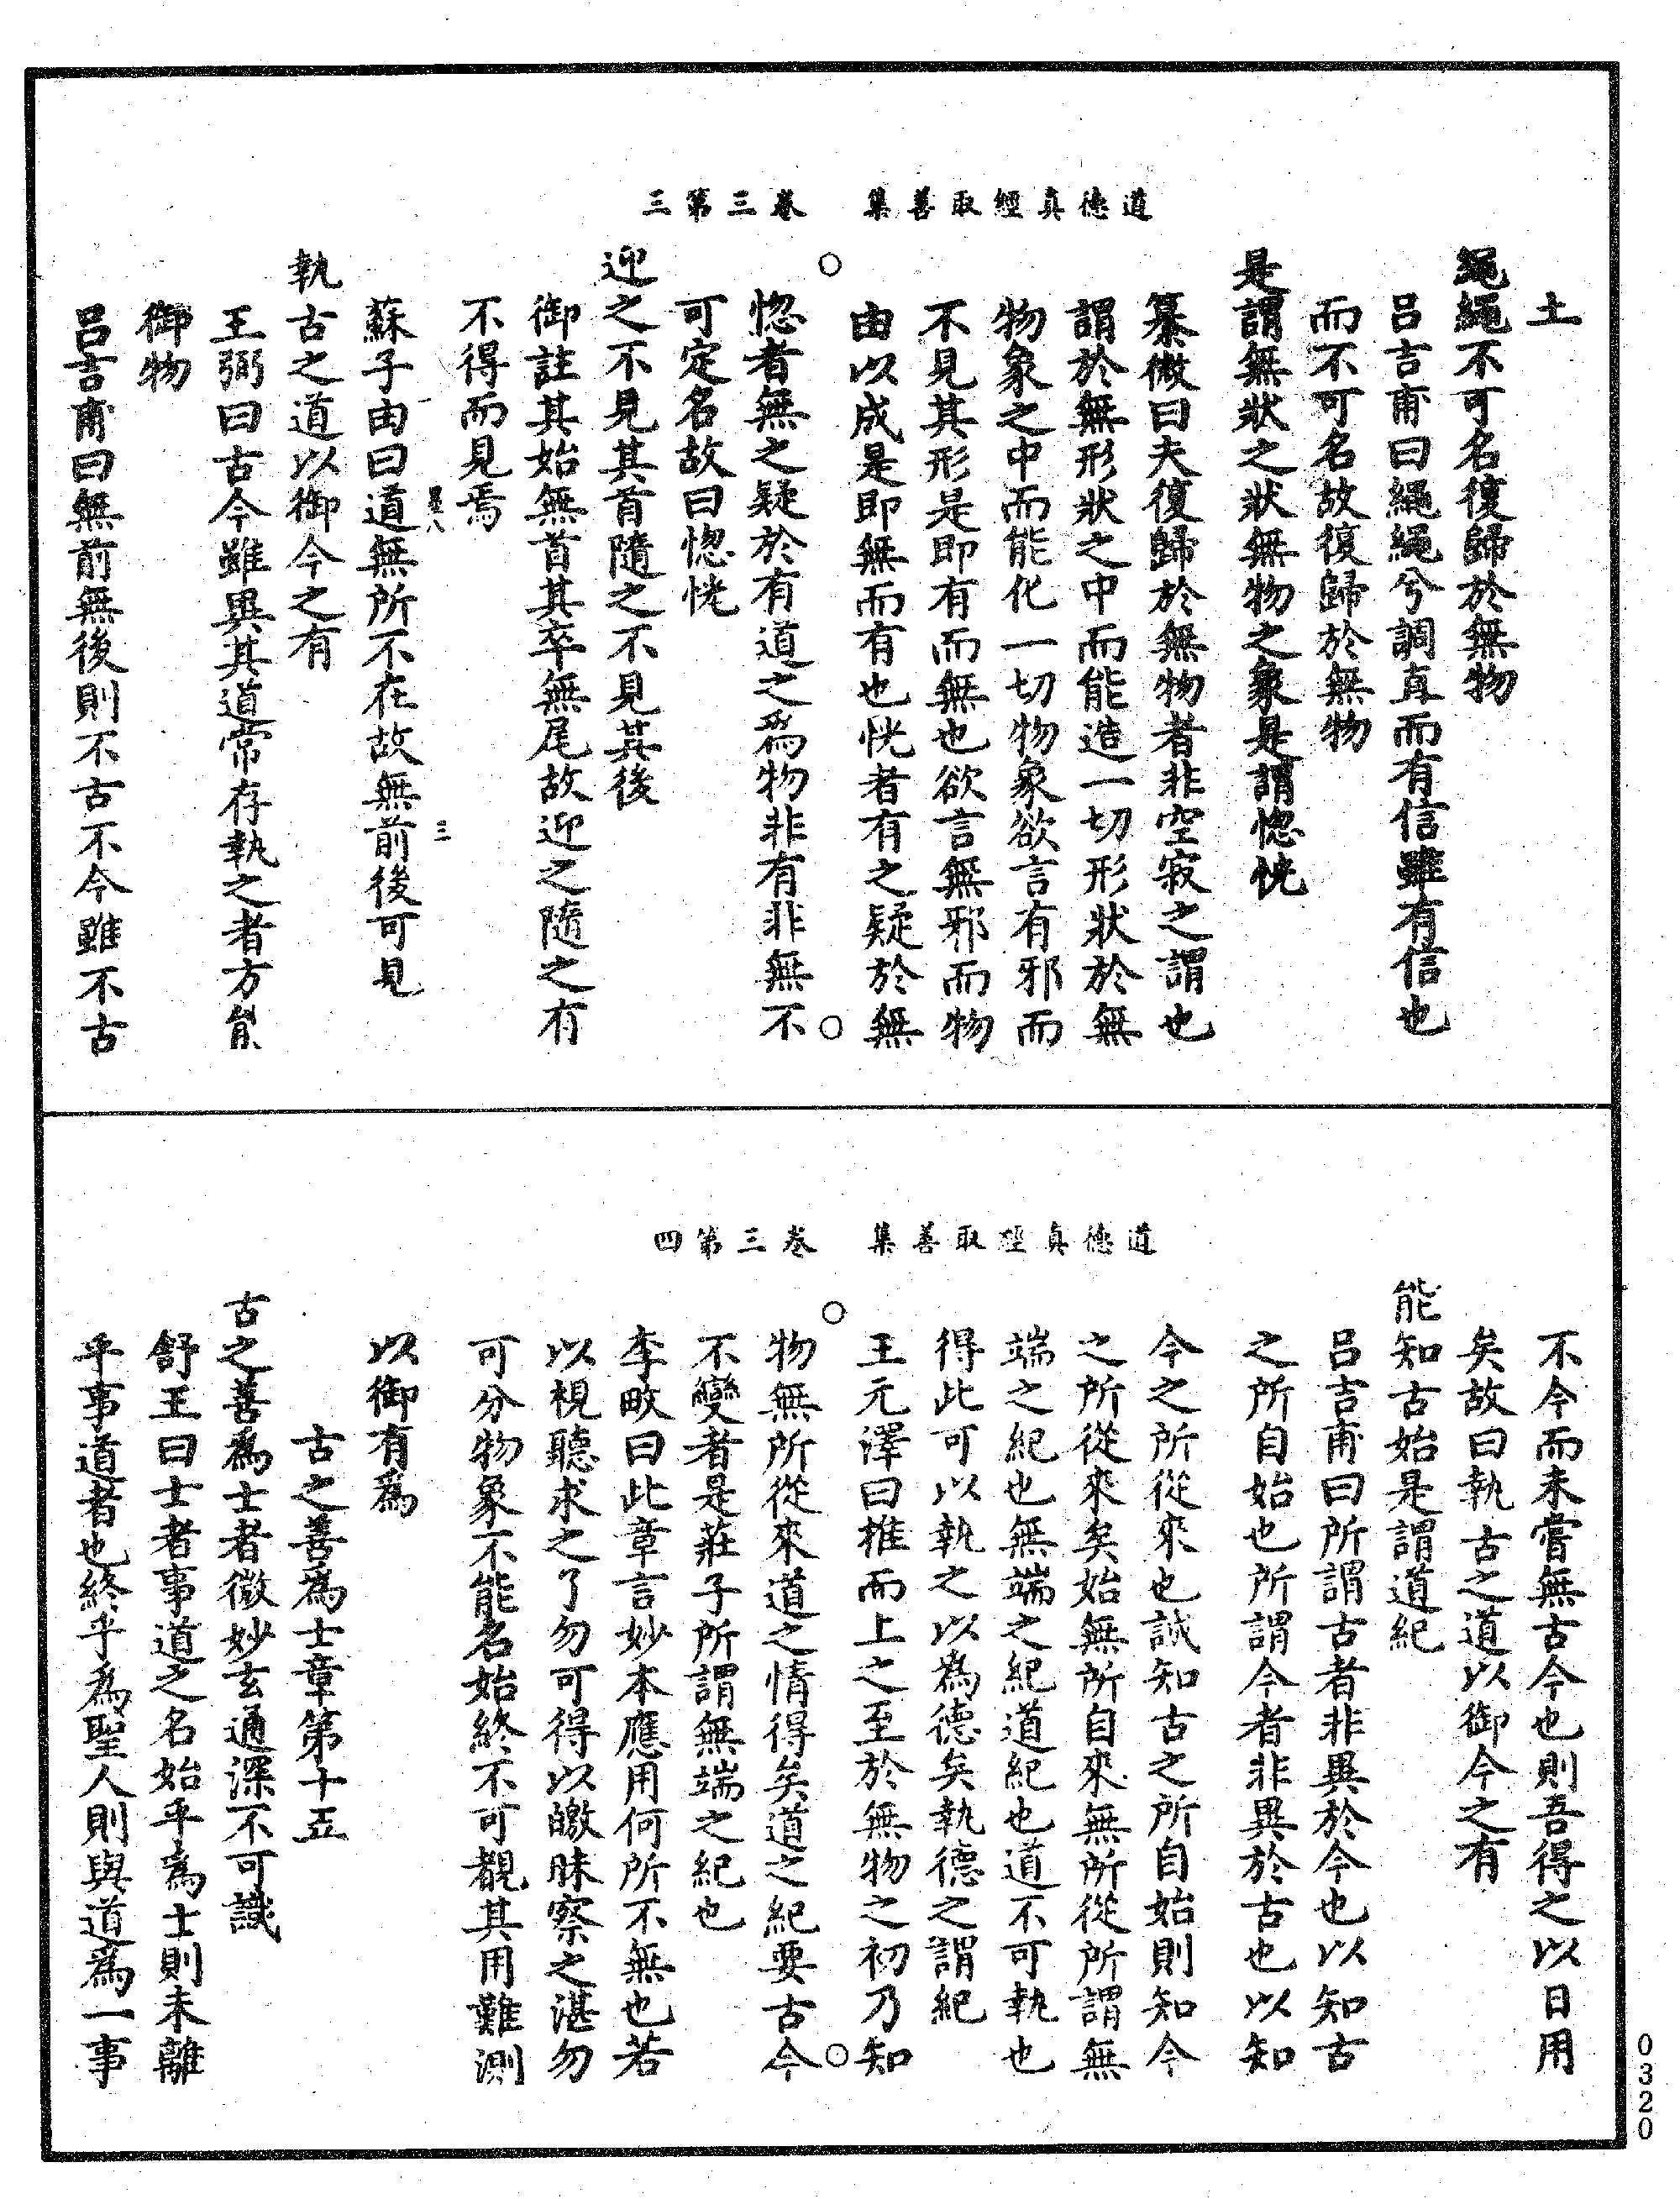 道德真經取善集　卷三第三
土
繩繩不可名復歸於無物
呂吉甫曰繩繩兮調直而有信雖有信也
而不可名故復歸於無物
是謂無狀之狀無物之象是謂惚恍
纂微曰夫復歸於無物者非空寂之謂也
謂於無形狀之中而能造一切形狀於無
物象之中而能化一切物象欲言有邪而
不見其形是即有而無也欲言無邪而物
由以成是即無而有也恍者有之疑於無
惚者無之疑於有道之為物非有非無不
可定名故曰惚恍
迎之不見其首隨之不見其後
御註其始無首其卒無尾故迎之隨之有
不得而見焉
三
蘇子由曰道無所不在故無前後可見
執古之道以御今之有
王弼曰古今雖異其道常存執之者方能
御物
呂吉甫曰無前無後則不古不今雖不古
道德真經取善集　卷三第四
不今而未嘗無古今也則吾得之以日用
矣故曰執古之道以御今之有
能知古始是謂道紀
呂吉甫曰所謂古者非異於今也以知古
之所自始也所謂今者非異於古也以知
今之所從來也誠知古之所自始則知今
之所從來矣始無所自來無所從所謂無
端之紀也無端之紀道紀也道不可執也
得此可以執之以為德矣執德之謂紀
王元澤曰推而上之至於無物之初乃知
物無所從來道之情得矣道之紀要古今
不變者是莊子所謂無端之紀也
李畋曰此章言妙本應用何所不無也若
以視聽求之了勿可得以皦昧察之湛勿
可分物象不能名始終不可覩其用難測
以御有為
古之善為士章第十五
古之善為士者微妙玄通深不可識
舒王曰士者事道之名始乎為士則未離
乎事道者也終乎為聖人則與道為一事
0320